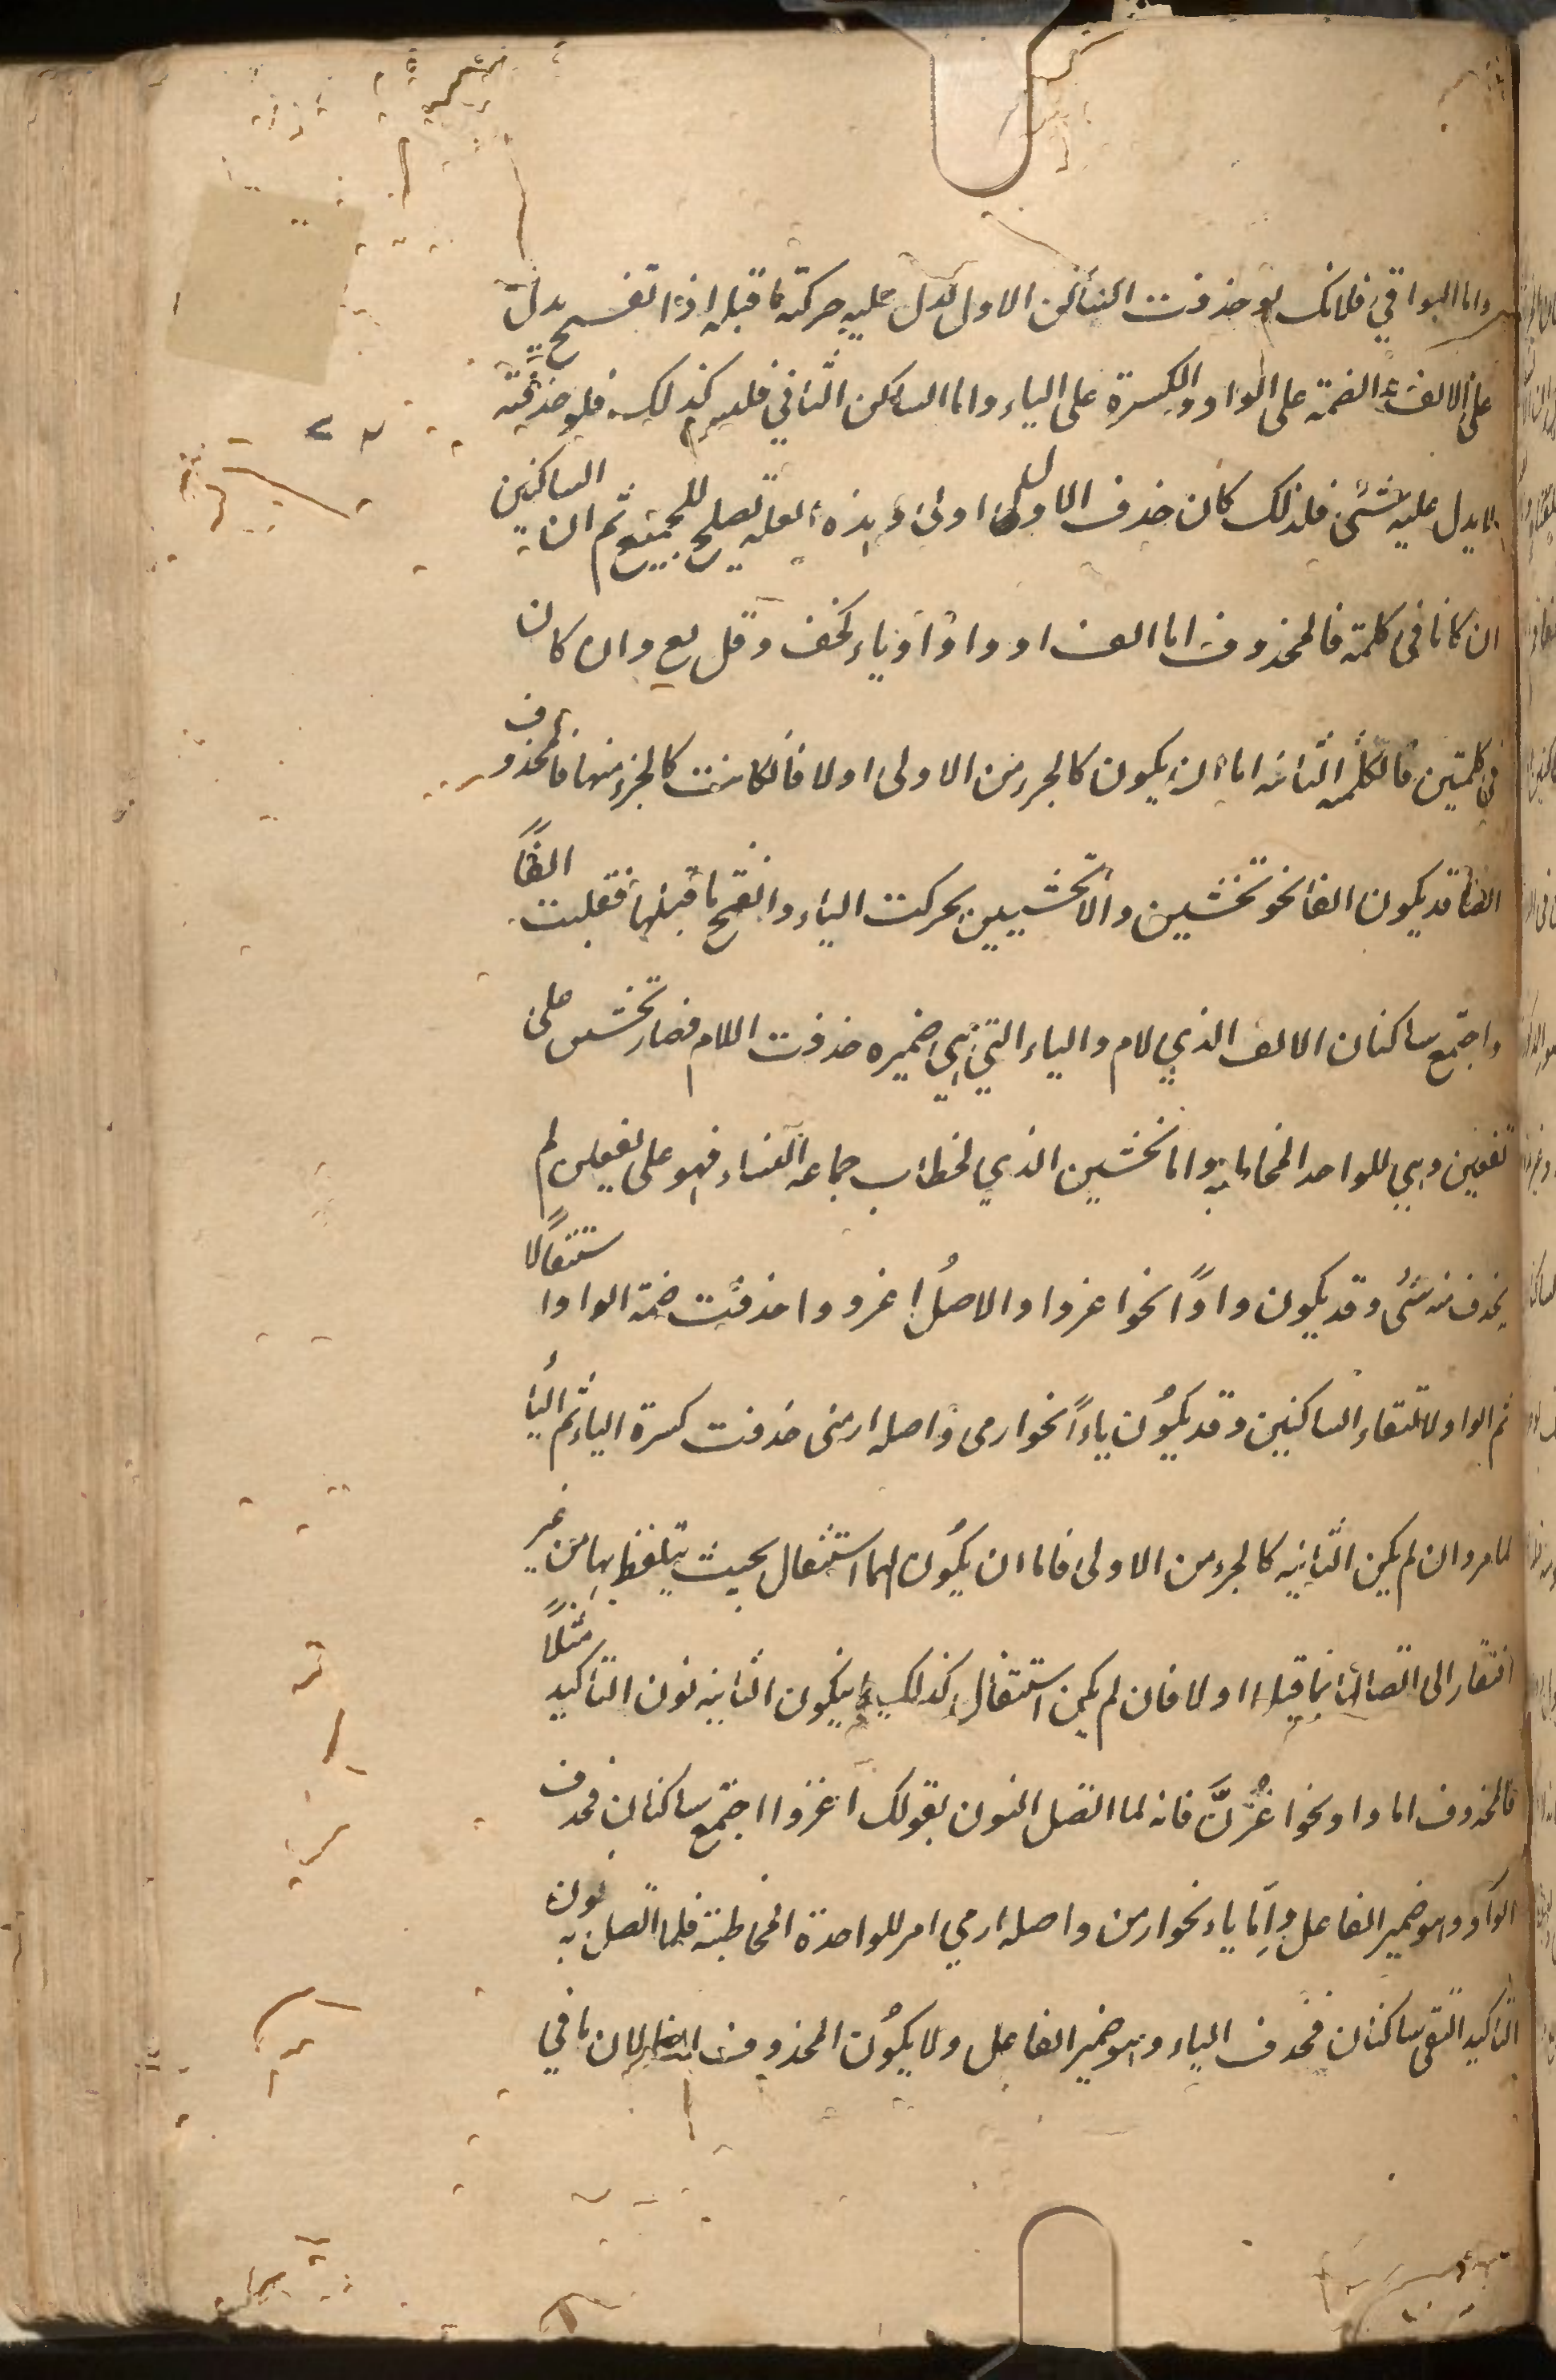 واما البواقي فلانك لو حذفت الساكن الاول لدل عليه حركته ما قبله اذا الفتح يدل
على الالف والضمة على الواو والكسرة على الياء واما الساكن الثاني فليس كذلك فلو حذفته
لا يدل عليه شئ فلذلك كان حذف الاول اولى وهذه العلة تصلح للجميع ثم ان الساكنين
ان كانا فى كلمة فالمحذوف اما الف او واوًا او ياء كخف وقل بع وان كان
فى كلمتين فالكلمه الثانيه اما ان يكون كالجزء من الاولى اولا فان كانت كالجزء منها فالمحذوف
ايضا قد يكون الفا نحو تخشين والا تخشيين تحركت الياء وانفتح ما قبلها فقلبت الفًا
واجتمع ساكنان الالف الذي لام والياء التي هي ضميره حذفت اللام فصار تخشين على
تفعين وهي للواحد المخاطبة واما تخشين الذي لخطاب جماعه النساء فهو على تفعلن لم
يحذف منه شئ وقد يكون واوًا نحو اغزوا والاصلُ اغزووا حذفت ضمة الواو استثقالًا
ثم الواو لالتقاء الساكنين وقد يكوُن ياءً نحو ارمى واصله ارميى حذفت كسرة الياء ثم الياُ
لما مر وان لم يكن الثانيه كالجزء من الاولى فاما ان يكوُن لهما استثقال بحيث يتلفظ بها من غير
افتقار الى اتصالها بما قبلها اولا فان لم يكن استثقال كذلك يكون الثانيه نون التأكيد مثلًا
فالمحذوف اما واو نحو اغزُنَّ فانه لما اتصل النون بقولك اغزوا اجتمع ساكنان فحذف
الواو وهو ضمير الفاعل واِمّا ياء نحو ارمن واصله ارمي امر للواحدة المخاطبة فلما اتصل به نون
التأكيد التقى ساكنان فحذف الياء وهو ضمير الفاعل ولا يكوُن المحذوف الفا لان ما في